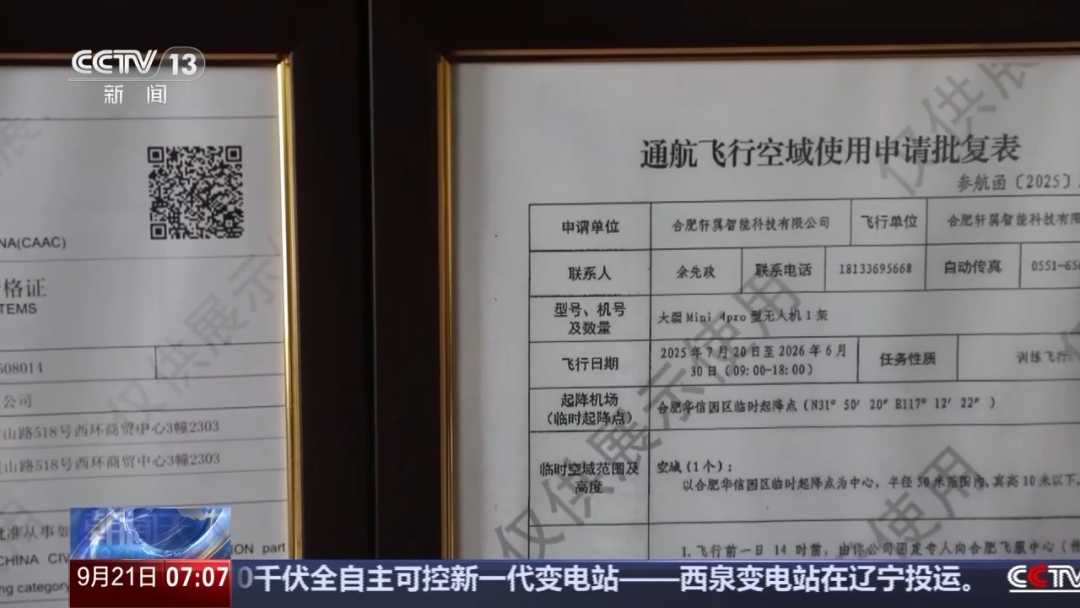 CCTV 13
新闻
NA(CAAC)
格证
TEMS
508014
公司
山路518号西环商贸中心3幢2303
山路518号西环商贸中心3幢2303
批准从事
CHINA CIV
ION part
ng category
仅供展示使用
通航飞行空域使用申请批复表
参航函〔2025〕
申请单位 合肥轩翼智能科技有限公司 飞行单位 合肥轩翼智能科技有限
联系人 余先政 联系电话 18133695668 自动传真 0551-656
型号、机号及数量 大疆Mini 4pro型无人机1架
飞行日期 2025年7月20日至2026年6月30日(09:00-18:00) 任务性质 训练飞行
起降机场(临时起降点) 合肥华信园区临时起降点(N31° 50′ 20″ B117° 12′ 22″ )
临时空域范围及高度 空域(1个):
以合肥华信园区临时起降点为中心,半径50米范围内、真高10米以下,
1.飞行前一日14时前,由你公司固定专人向合肥飞服中心
9月21日 07:07
0千伏全自主可控新一代变电站——西泉变电站在辽宁投运。
CCTV